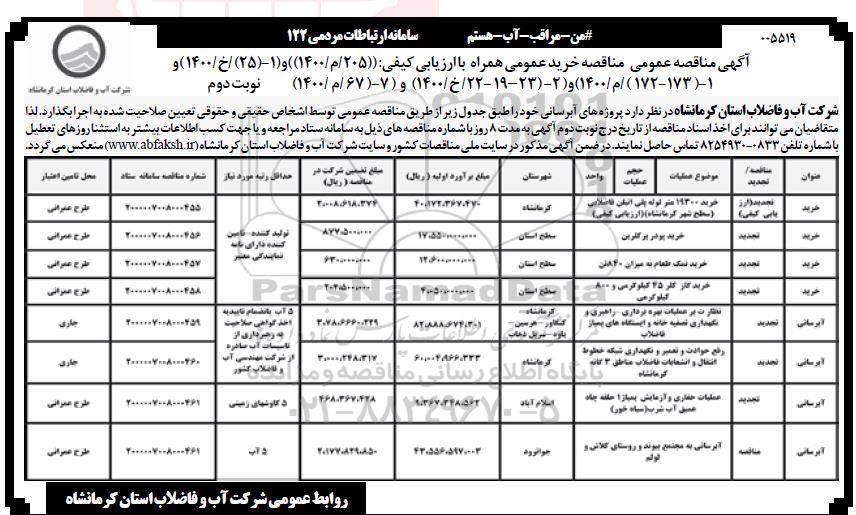 #من-مراقب-آب-هستم
سامانه ارتباطات مردمی ۱۲۲
۰۰۵۵۱۹
شرکت آب و فاضلاب استان کرمانشاه
آگهی مناقصه عمومی مناقصه خرید عمومی همراه با ارزیابی کیفی: ((۲۰۵/م/۱۴۰۰))و(۱-(۲۵)/خ/۱۴۰۰)و
۱-(۱۷۳-۱۷۲)/م/۱۴۰۰)و(۲-(۲۳-۱۹-۲۲/خ/۱۴۰۰) و (۷-(۶۷/م/۱۴۰۰) نوبت دوم
شرکت آب و فاضلاب استان کرمانشاه در نظر دارد پروژه های آبرسانی خود را طبق جدول زیر از طریق مناقصه عمومی توسط اشخاص حقیقی و حقوقی تعیین صلاحیت شده به اجرا بگذارد. لذا
متقاضیان می توانند برای اخذ اسناد مناقصه از تاریخ درج نوبت دوم آگهی به مدت ۸ روز با شماره مناقصه های ذیل به سامانه ستاد مراجعه و یا جهت کسب اطلاعات بیشتر به استثنا روزهای تعطیل
با شماره تلفن ۰۸۳۳-۸۲۵۴۹۳۰ تماس حاصل نمایند. در ضمن آگهی مذکور در سایت ملی مناقصات کشور و سایت شرکت آب و فاضلاب استان کرمانشاه (www.abfaksh.ir) منعکس می گردد.
عنوان | مناقصه/ تجدید | موضوع عملیات | حجم عملیات | واحد | شهرستان | مبلغ برآورد اولیه (ریال) | مبلغ تضمین شرکت در مناقصه (ریال) | حداقل رتبه مورد نیاز | شماره مناقصه سامانه ستاد | محل تامین اعتبار
خرید | تجدید(ارزیابی کیفی) | خرید ۱۹۳۰۰ متر لوله پلی اتیلن فاضلابی (سطح شهر کرمانشاه)(ارزیابی کیفی) | کرمانشاه | ۴۰،۱۷۲،۳۶۷،۴۷۰ | ۲،۰۰۸،۶۱۸،۳۷۴ | تولید کننده-تامین کننده دارای نامه نمایندگی معتبر | ۲۰۰۰۰۰۷۰۰۸۰۰۰۴۵۵ | طرح عمرانی
خرید | تجدید | خرید پودر پرکلرین | سطح استان | ۱۷،۵۵۰،۰۰۰،۰۰۰ | ۸۷۷،۵۰۰،۰۰۰ | ۲۰۰۰۰۰۷۰۰۸۰۰۰۴۵۶ | طرح عمرانی
خرید | تجدید | خرید نمک طعام به میزان ۸۴۰تن | سطح استان | ۱۲،۶۰۰،۰۰۰،۰۰۰ | ۶۳۰،۰۰۰،۰۰۰ | ۲۰۰۰۰۰۷۰۰۸۰۰۰۴۵۷ | طرح عمرانی
خرید | تجدید | خرید گاز کلر ۴۵ کیلوگرمی و ۸۰۰ کیلوگرمی | سطح استان | ۴،۰۵۰،۰۰۰،۰۰۰ | ۲۰۲،۵۰۰،۰۰۰ | ۲۰۰۰۰۰۷۰۰۸۰۰۰۴۵۸ | طرح عمرانی
آبرسانی | تجدید | نظارت بر عملیات بهره برداری -راهبری و نگهداری تصفیه خانه و ایستگاه های پمپاژ فاضلاب | کرمانشاه-کنگاور-هرسین-پاوه-سرپل ذهاب | ۸۲،۸۸۸،۶۷۴،۳۰۱ | ۵ آب بانضمام تاییدیه اخذ گواهی صلاحیت بهره برداری از تاسیسات آب صادره از شرکت مهندسی آب و فاضلاب کشور | ۲۰۰۰۰۰۷۰۰۸۰۰۰۴۵۹ | جاری
آبرسانی | تجدید | رفع حوادث و تعمیر و نگهداری شبکه خطوط انتقال و انشعابات فاضلاب مناطق ۳ گانه کرمانشاه | کرمانشاه | ۶۰،۰۰۴،۹۶۶،۳۳۳ | ۳،۰۰۰،۲۴۸،۳۱۷ | ۲۰۰۰۰۰۷۰۰۸۰۰۰۴۶۰ | جاری
آبرسانی | تجدید | عملیات حفاری و آزمایش پمپاژ۱ حلقه چاه عمیق آب شرب(سیاه خور) | اسلام آباد | ۹،۳۶۷،۳۴۸،۵۶۲ | ۴۶۸،۳۶۷،۴۲۸ | ۵ کاوشهای زمینی | ۲۰۰۰۰۰۷۰۰۸۰۰۰۴۶۱ | طرح عمرانی
آبرسانی | مناقصه | آبرسانی به مجتمع بیوند و روستای کلاش و لولم | جوانرود | ۴۳،۵۵۶،۵۹۷،۰۰۳ | ۲،۱۷۷،۸۲۹،۸۵۰ | ۵ آب | ۲۰۰۰۰۰۷۰۰۸۰۰۰۴۶۱ | طرح عمرانی
ParsNamadData
پایگاه اطلاع رسانی مناقصه و مزایده
۰۲۱-۸۸۳۴۹۶۷۰-۵
روابط عمومی شرکت آب و فاضلاب استان کرمانشاه